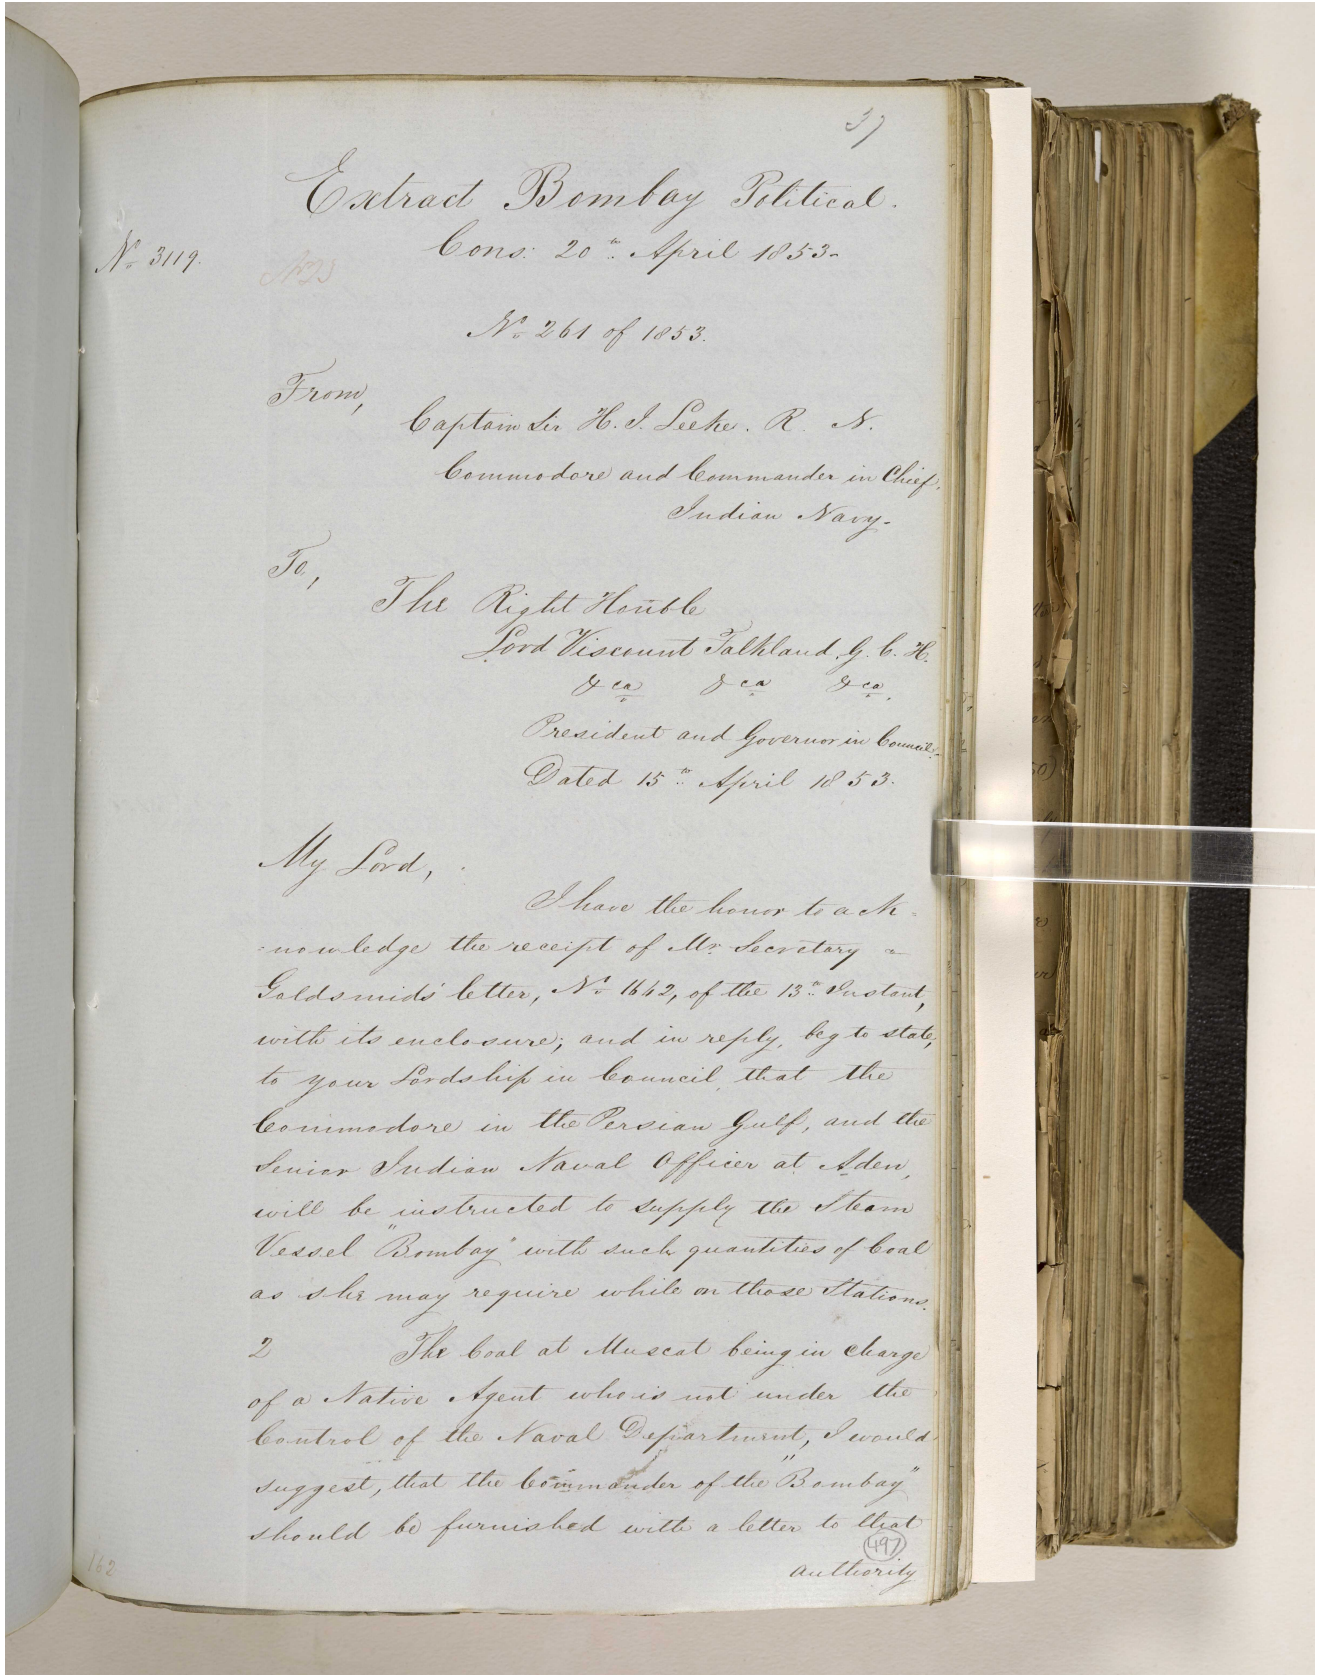 37
Extract Bombay Political.
Cons: 20th April 1853-
No 3119.
No 261 of 1853.
From,
Captain Sir H. J. Leeke. R. N.
Commodore and Commander in Chief,
Indian Navy-
To,
The Right Honble
Lord Viscount Falkland, G. C. H.
&ca &ca &ca.
President and Governor in Council.
Dated 15th April 1853.
My Lord,
I have the honor to ack=
=nowledge the receipt of Mr Secretary
Goldsmids' letter, No 1642, of the 13th Instant,
with its enclosure; and in reply, beg to state,
to your Lordship in Council, that the
Commodore in the Persian Gulf, and the
Senior Indian Naval Officer at Aden,
will be instructed to supply the Steam
Vessel "Bombay" with such quantities of Coal
as she may require while on those Stations.
2 The Coal at Muscat being in charge
of a Native Agent who is not under the
Control of the Naval Department, I would
suggest, that the Commander of the "Bombay"
should be furnished with a letter to that
497
authority
162